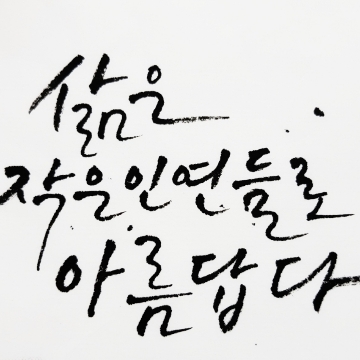 삶은
작은인연들로
아름답다